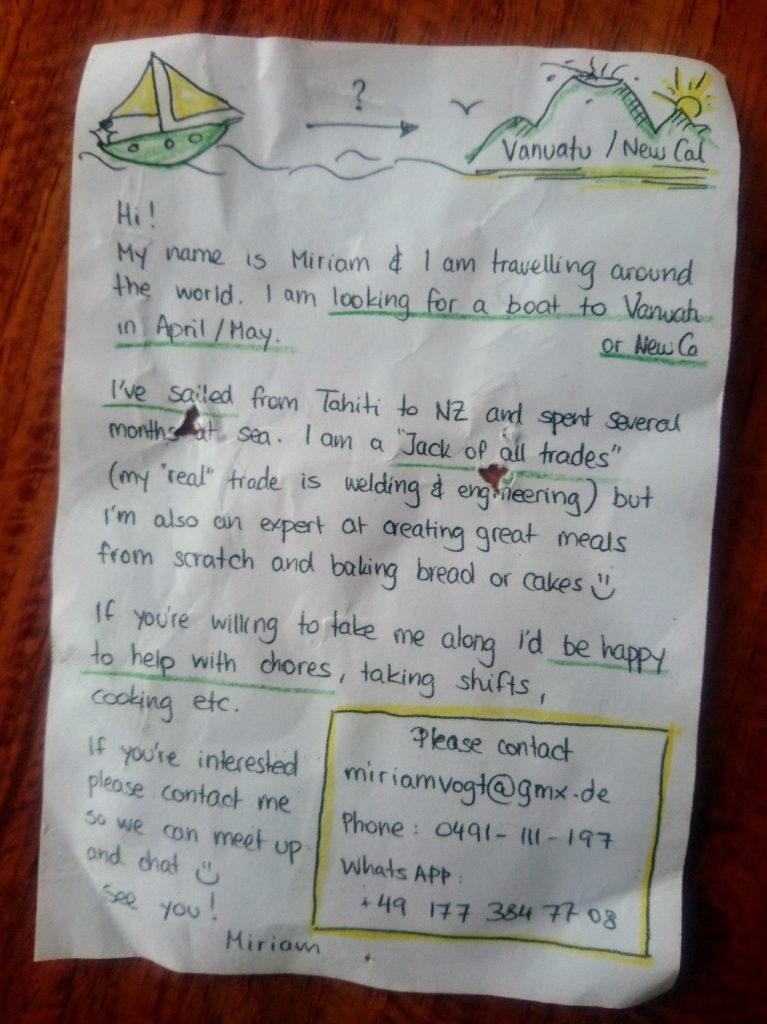 ?
Vanuatu / New Cal
Hi!
My name is Miriam & I am travelling around
the world. I am looking for a boat to Vanuatu
in April/May. or New Ca
I've sailed from Tahiti to NZ and spent several
months at sea. I am a "Jack of all trades"
(my "real" trade is welding & engineering) but
I'm also an expert at creating great meals
from scratch and baking bread or cakes :)
If you're willing to take me along i'd be happy
to help with chores, taking shifts,
cooking etc.
If you're interested
please contact me
so we can meet up
and chat :)
see you!
Miriam
Please contact
miriamvogt@gmx.de
Phone: 0491-111-197
Whats APP:
+49 177 384 77 08